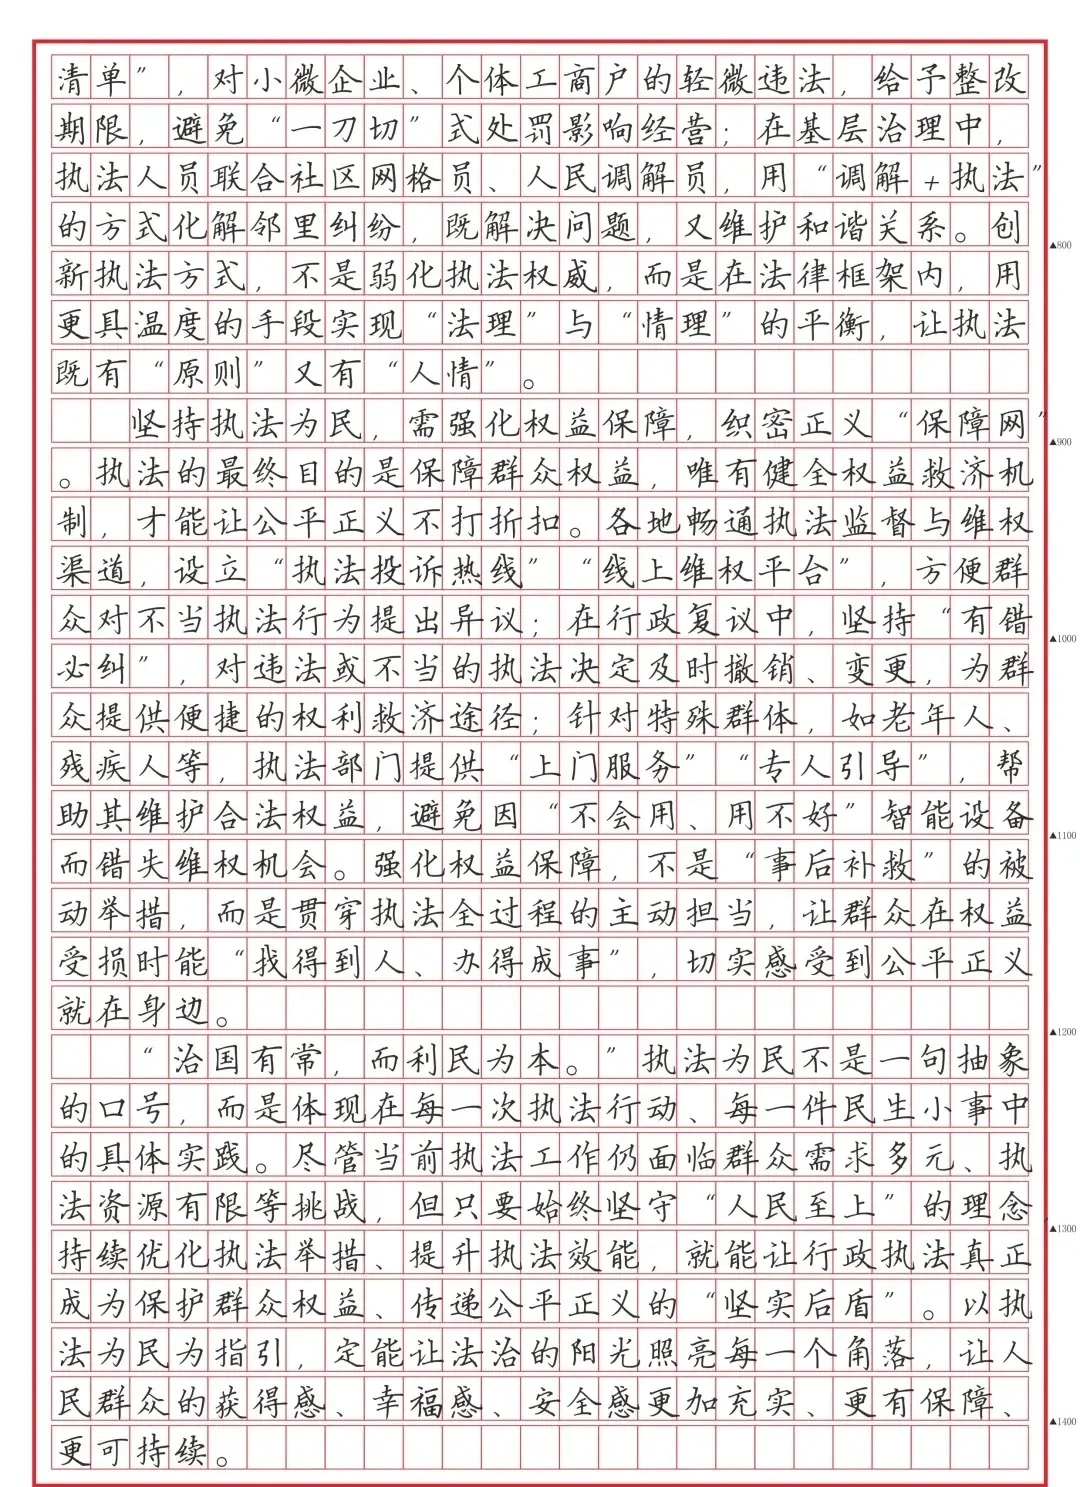 清单”,对小微企业、个体工商户的轻微违法,给予整改
期限,避免“一刀切”式处罚影响经营;在基层治理中,
执法人员联合社区网格员、人民调解员,用“调解+执法”
的方式化解邻里纠纷,既解决问题,又维护和谐关系。创
新执法方式,不是弱化执法权威,而是在法律框架内,用
更具温度的手段实现“法理”与“情理”的平衡,让执法
既有“原则”又有“人情”。
坚持执法为民,需强化权益保障,织密正义“保障网”
。执法的最终目的是保障群众权益,唯有健全权益救济机
制,才能让公平正义不打折扣。各地畅通执法监督与维权
渠道,设立“执法投诉热线”“线上维权平台”,方便群
众对不当执法行为提出异议;在行政复议中,坚持“有错
必纠”,对违法或不当的执法决定及时撤销、变更,为群
众提供便捷的权利救济途径;针对特殊群体,如老年人、
残疾人等,执法部门提供“上门服务”“专人引导”,帮
助其维护合法权益,避免因“不会用、用不好”智能设备
而错失维权机会。强化权益保障,不是“事后补救”的被
动举措,而是贯穿执法全过程的主动担当,让群众在权益
受损时能“找得到人、办得成事”,切实感受到公平正义
就在身边。
“治国有常,而利民为本。”执法为民不是一句抽象
的口号,而是体现在每一次执法行动、每一件民生小事中
的具体实践。尽管当前执法工作仍面临群众需求多元、执
法资源有限等挑战,但只要始终坚守“人民至上”的理念,
持续优化执法举措、提升执法效能,就能让行政执法真正
成为保护群众权益、传递公平正义的“坚实后盾”。以执
法为民为指引,定能让法治的阳光照亮每一个角落,让人
民群众的获得感、幸福感、安全感更加充实、更有保障、
更可持续。
▲800
▲900
▲1000
▲1100
▲1200
▲1300
▲1400